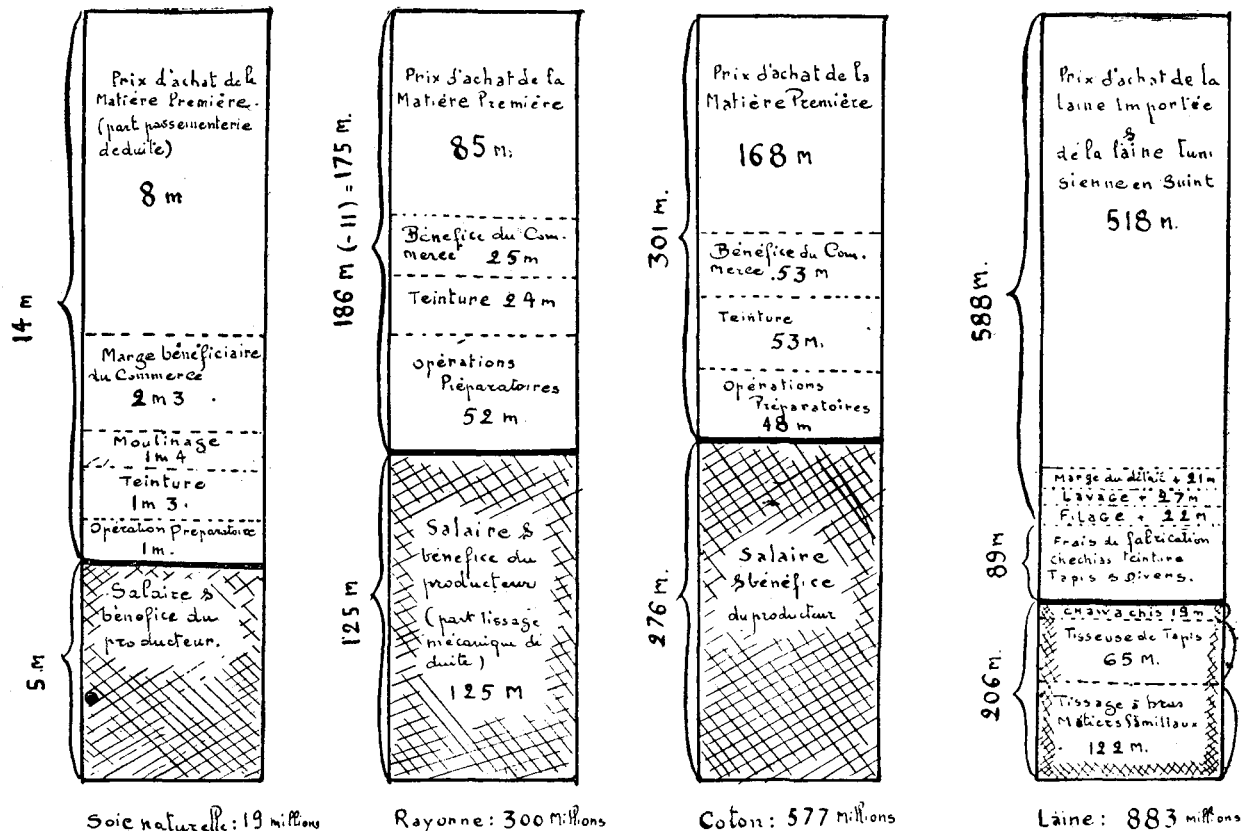 14 m
5 m
Prix d'achat de la
Matière Première.
(part passementerie
deduite)
8 m
Marge bénéficiaire
du Commerce
2 m 3
Moulinage
1 m 4
Teinture
1 m 3.
Opération Préparatoire
1 m.
Salaire &
bénéfice du
producteur.
Soie naturelle: 19 millions
186 m (-11) = 175 m.
125 m
Prix d'achat de la
Matière Première
85 m.
Bénéfice du Com-
merce 25 m
Teinture 24 m
Opérations
Préparatoires
52 m.
Salaire &
bénéfice du
producteur
(part tissage
mécanique dé
duite)
125 M
Rayonne: 300 millions
301 m.
276 m.
Prix d'achat de la
Matière Première
168 m
Bénéfice du Com-
merce. 53 m
Teinture
53 m.
Opérations
Préparatoires
48 m
Salaire
& bénéfice
du producteur
Coton: 577 millions
588 m.
89 m
206 m.
Prix d'achat de la
laine importée
&
de la laine Tuni
sienne en Suint
518 m.
Marge du détail + 21 m
Lavage + 27 m
Filage + 22 m
Frais de fabrication
Chechias Teinture
Tapis & Divers.
Chawachis 19 m
Tisseuse de Tapis
65 M.
Tissage à bras
Métiers familiaux
122 m.
Laine: 883 millions